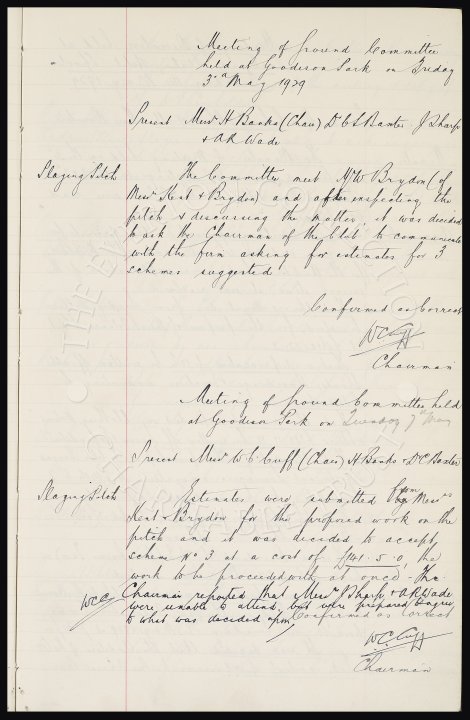 Meeting of Ground Committee
held at Goodison Park on Friday
3rd May 1929
Present Messrs H Banks (Chair) Dr C S Baxter J Sharp
& A R Wade
Playing Pitch The Committee met Mr W Brydon (of
Messrs Kent & Brydon) and after inspecting the
pitch & discussing the matter, it was decided
to ask the Chairman of the Club to communicate
with the firm asking for estimates for 3
schemes suggested
Confirmed as Correct
W C Cuff
Chairman
Meeting of Ground Committee held
at Goodison Park on Tuesday 7th May
Present Messrs W C Cuff (Chair) H Banks & Dr C Baxter
Playing Pitch Estimates were submitted from Messrs
Kent & Brydon for the proposed work on the
pitch and it was decided to accept
scheme No 3 at a cost of £141.5.0, the
work to be proceeded with at once. The
WCC Chairman reported that Messrs J Sharp & A R Wade
were unable to attend, but were prepared to agree
to what was decided upon, Confirmed as Correct
W. C. Cuff
Chairman